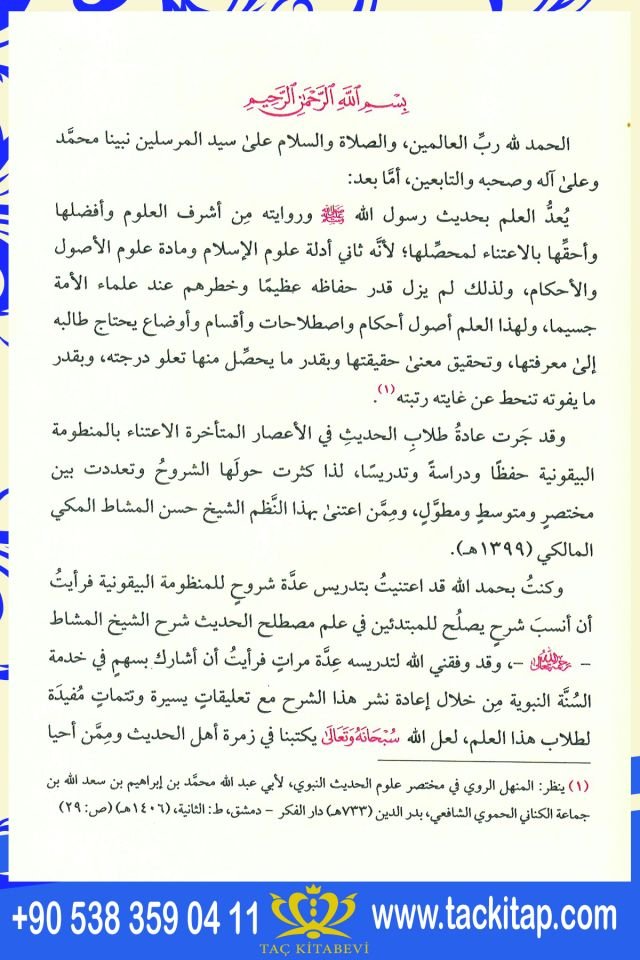 بِسْمِ اللَّهِ الرَّحْمَٰنِ الرَّحِيمِ
الحمد لله ربِّ العالمين، والصلاة والسلام علىٰ سيد المرسلين نبينا محمَّد
وعلىٰ آله وصحبه والتابعين، أمَّا بعد:
يُعدُّ العلم بحديث رسول الله ﷺ وروايته مِن أشرف العلوم وأفضلها
وأحقِّها بالاعتناء لمحصِّلها؛ لأنَّه ثاني أدلة علوم الإسلام ومادة علوم الأصول
والأحكام، ولذلك لم يزل قدر حفاظه عظيمًا وخطرهم عند علماء الأمة
جسيما، ولهذا العلم أصول أحكام واصطلاحات وأقسام وأوضاع يحتاج طالبه
إلىٰ معرفتها، وتحقيق معنىٰ حقيقتها وبقدر ما يحصِّل منها تعلو درجته، وبقدر
ما يفوته تنحط عن غايته رتبته(١).
وقد جَرت عادةُ طلابِ الحديثِ في الأعصار المتأخرة الاعتناء بالمنظومة
البيقونية حفظًا ودراسةً وتدريسًا، لذا كثرت حولَها الشروحُ وتعددت بين
مختصرٍ ومتوسطٍ ومطوَّلٍ، ومِمَّن اعتنىٰ بهذا النَّظم الشيخ حسن المشاط المكي
المالكي (١٣٩٩هـ).
وكنتُ بحمد الله قد اعتنيتُ بتدريس عدَّة شروحٍ للمنظومة البيقونية فرأيتُ
أن أنسبَ شرحٍ يصلُح للمبتدئين في علم مصطلح الحديث شرح الشيخ المشاط
– رَحِمَهُ اللَّهُ تَعَالَىٰ –، وقد وفقني الله لتدريسه عِدَّة مراتٍ فرأيتُ أن أشارك بسهمٍ في خدمة
السُنَّة النبوية مِن خلال إعادة نشر هذا الشرح مع تعليقاتٍ يسيرة وتتماتٍ مُفيدَة
لطلاب هذا العلم، لعل الله سُبْحَانَهُ وَتَعَالَىٰ يكتبنا في زمرة أهل الحديث ومِمَّن أحيا
(١) ينظر: المنهل الروي في مختصر علوم الحديث النبوي، لأبي عبد الله محمَّد بن إبراهيم بن سعد الله بن
جماعة الكناني الحموي الشافعي، بدر الدين (٧٣٣هـ) دار الفكر – دمشق، ط: الثانية، (١٤٠٦هـ) (ص: ٢٩)
+90 538 359 04 11
TAÇ KİTABEVİ
www.tackitap.com